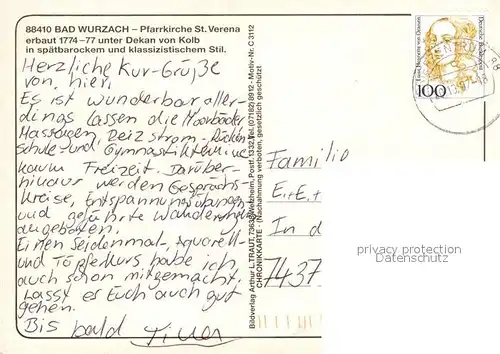 88410 BAD WURZACH – Pfarrkirche St. Verena
erbaut 1774–77 unter Dekan von Kolb
in spätbarockem und klassizistischem Stil.
Herzliche Kur-Grüße
von hier.
Es ist wunderbar aller-
dings lassen die Moorbäder
Massagen, Reizstrom-, Rücken-
schule- und Gymnastiktermine
kaum Freizeit. Darüber-
hinaus werden Gesprächs-
kreise, Entspannungsübungen
und geführte Wanderungen
angeboten.
Einen Seidenmal-, Aquarell-
und Töpferkurs habe ich
auch schon mitgemacht.
Lasst es Euch auch gut
gehen.
Bis bald
Bildverlag Arthur L. TRAUT, Postf. 1332, Tel. (07182) 8912 - Motiv-Nr. C 3112
CHRONIKKARTE - (Nachahmung verboten, gesetzlich geschützt)
Deutsche Bundespost
100
Familie
E.+E.+
In d
7437
privacy protection
Datenschutz